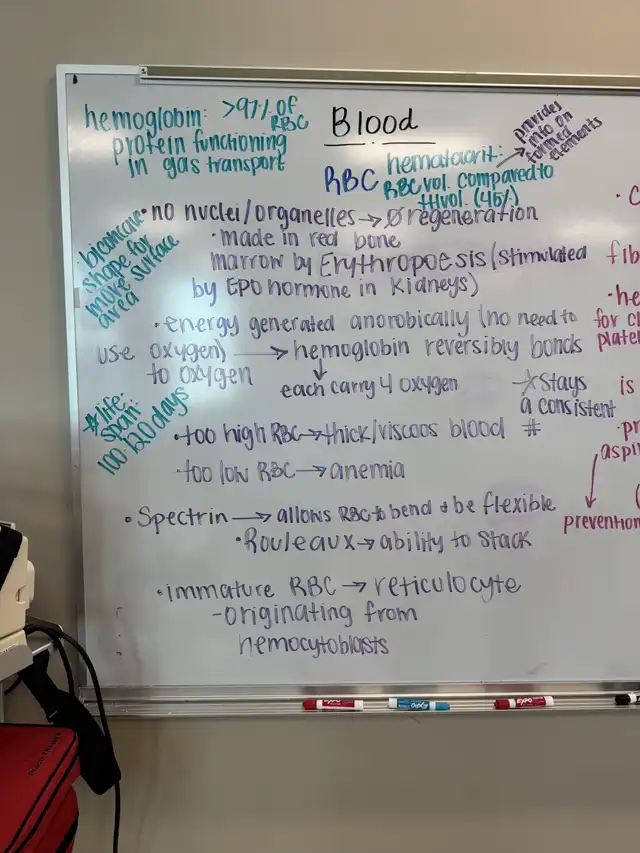 Blood
hemoglobin: >97% of RBC
protein functioning
in gas transport
RBC
hematacrit:
RBC vol. compared to
ttl vol. (45%)
provides
info on
formed
elements
•no nuclei/organelles → Ø regeneration
•biconcave
shape for
more surface
area
•made in red bone
marrow by Erythropoesis (stimulated
by EPO hormone in kidneys)
•energy generated anorobically (no need to
use oxygen) → hemoglobin reversibly bonds
to oxygen
each carry 4 oxygen
*stays
a consistent
#
*life:
span:
100-120 days
•too high RBC → thick/viscous blood
•too low RBC → anemia
•Spectrin → allows RBC to bend & be flexible
•Rouleaux → ability to stack
•immature RBC → reticulocyte
-originating from
hemocytoblasts
fib
•he
for cl
platel
is
•pr
aspi
prevention
EXPO
EXPO